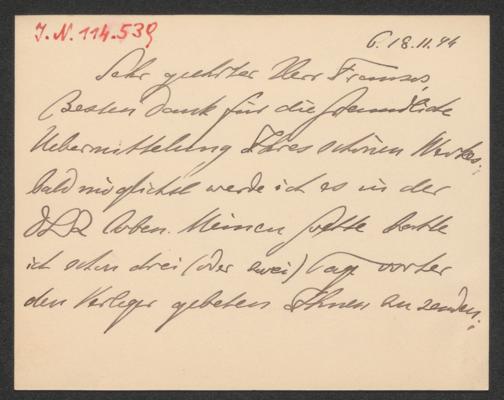 J. N. 114.539
G. 18.11.94
Sehr geehrter Herr Franzos,
Besten Dank für die freundliche
Uebermittelung Ihres schönen Werkes;
baldmöglichst werde ich es in der
loben. Meinen hatte
ich schon drei (oder zwei) Tage vorher
den Verleger gebeten Ihnen an zusenden;